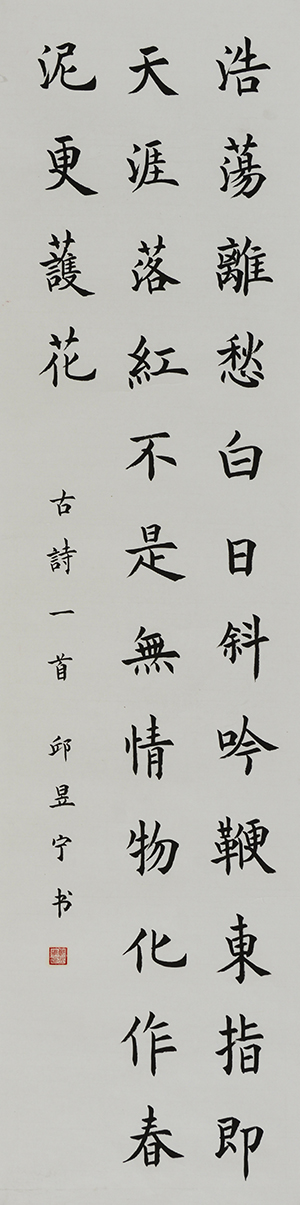 浩蕩離愁白日斜吟鞭東指即
天涯落紅不是無情物化作春
泥更護花
古詩一首 邱昱宁书